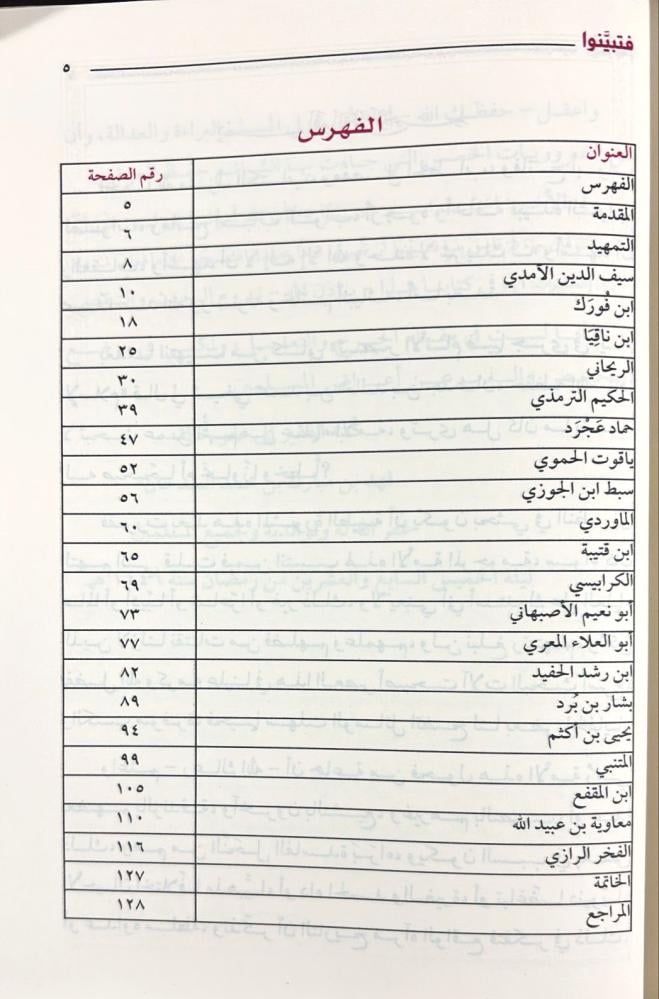 فتبيَّنوا
٥
الفهرس
العنوان رقم الصفحة
الفهرس ٥
المقدمة ٦
التمهيد ٨
سيف الدين الآمدي ١٠
ابن فُورَك ١٨
ابن ناقِيَا ٢٥
الريحاني ٣٠
الحكيم الترمذي ٣٩
حماد عَجْرَد ٤٧
ياقوت الحموي ٥٢
سبط ابن الجوزي ٥٦
الماوردي ٦٠
ابن قتيبة ٦٥
الكرابيسي ٦٩
أبو نعيم الأصبهاني ٧٣
أبو العلاء المعري ٧٧
ابن رشد الحفيد ٨٢
بشار بن بُرد ٨٩
يحيى بن أكثم ٩٤
المتنبي ٩٩
ابن المقفع ١٠٥
معاوية بن عبيد الله ١١٠
الفخر الرازي ١١٦
الخاتمة ١٢٧
المراجع ١٢٨